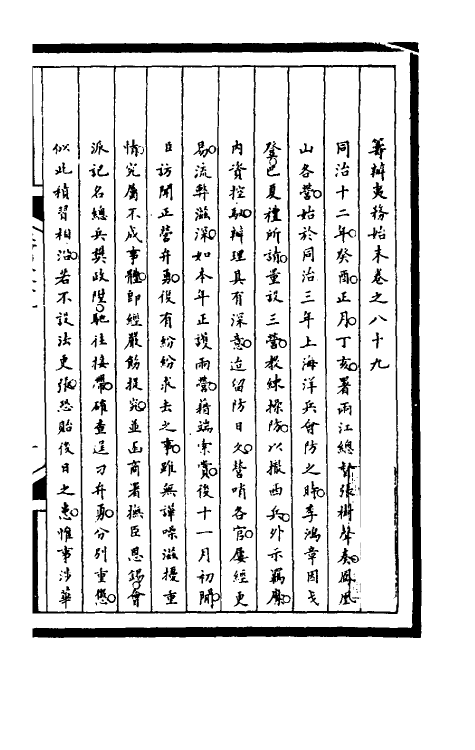 籌辦夷務始末卷之八十九
同治十二年癸酉正月丁亥署兩江總督張樹聲奏鳳凰
山各營始於同治三年上海洋兵會防之時李鴻章因戈
登巴夏禮所請量設三營教練操防以撤西兵外示羈縻
內資控馭辦理具有深意迨留防日久營哨各官屢經更
易流弊滋深如本年正護兩營藉端索賞後十一月初間
臣訪聞正營弁勇復有紛紛求去之事雖無譁噪滋擾重
情究屬不成事體即經嚴飭提究並函商署撫臣恩錫會
派記名總兵樊政陞馳往接帶確查逞刁弁勇分別重懲
似此積習相沿若不設法更張恐貽後日之患惟事涉華